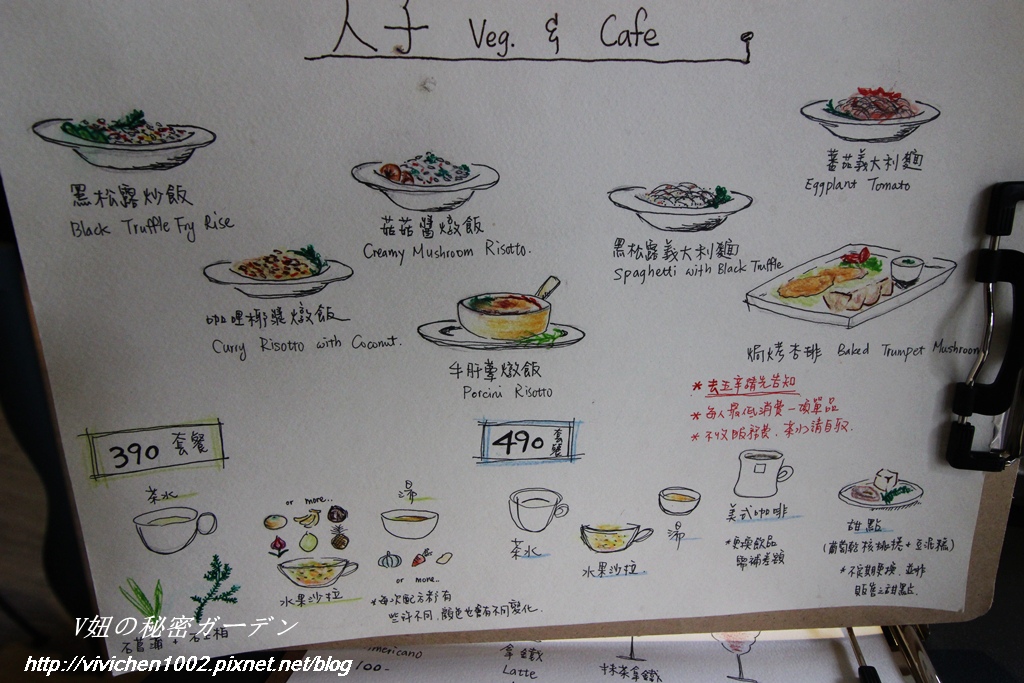 人子 Veg. & Cafe
黑松露炒飯
Black Truffle Fry Rise
菇菇醬燉飯
Creamy Mushroom Risotto.
黑松露義大利麵
Spaghetti with Black Truffle
蕃茄義大利麵
Eggplant Tomato
咖哩椰漿燉飯
Curry Risotto with Coconut.
牛肝蕈燉飯
Porcini Risotto
焗烤杏排 Baked Trumpet Mushroom
*去五辛請先告知
*每人最低消費一項單品
*不收服務費,茶水請自取.
390 套餐
490 套餐
茶水
or more...
湯
水果沙拉
or more..
*每次配方都有
些許不同,顏色也會有不同變化.
石菖蒲 +
茶水
水果沙拉.
湯
美式咖啡
*更換飲品
需補差額
甜點
(葡萄乾核桃捲+豆泥糕)
*不定期更換,並非
販售之甜點.
V妞の秘密ガーデン
http://vivichen1002.pixnet.net/blog
mericano
100.-
拿鐵
Latte
抹茶拿鐵